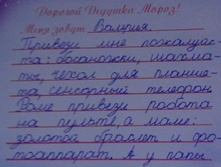 Дорогой Дедушка Мороз!
Меня зовут Валерия.
Привези мне пожалуйс-
та: босоножки, шахма-
ты, чехол для планше-
та, сенсорный телефон
Роме привези робота
на пульте, а маме:
золотой браслет и фо-
тоаппарат. А у папы